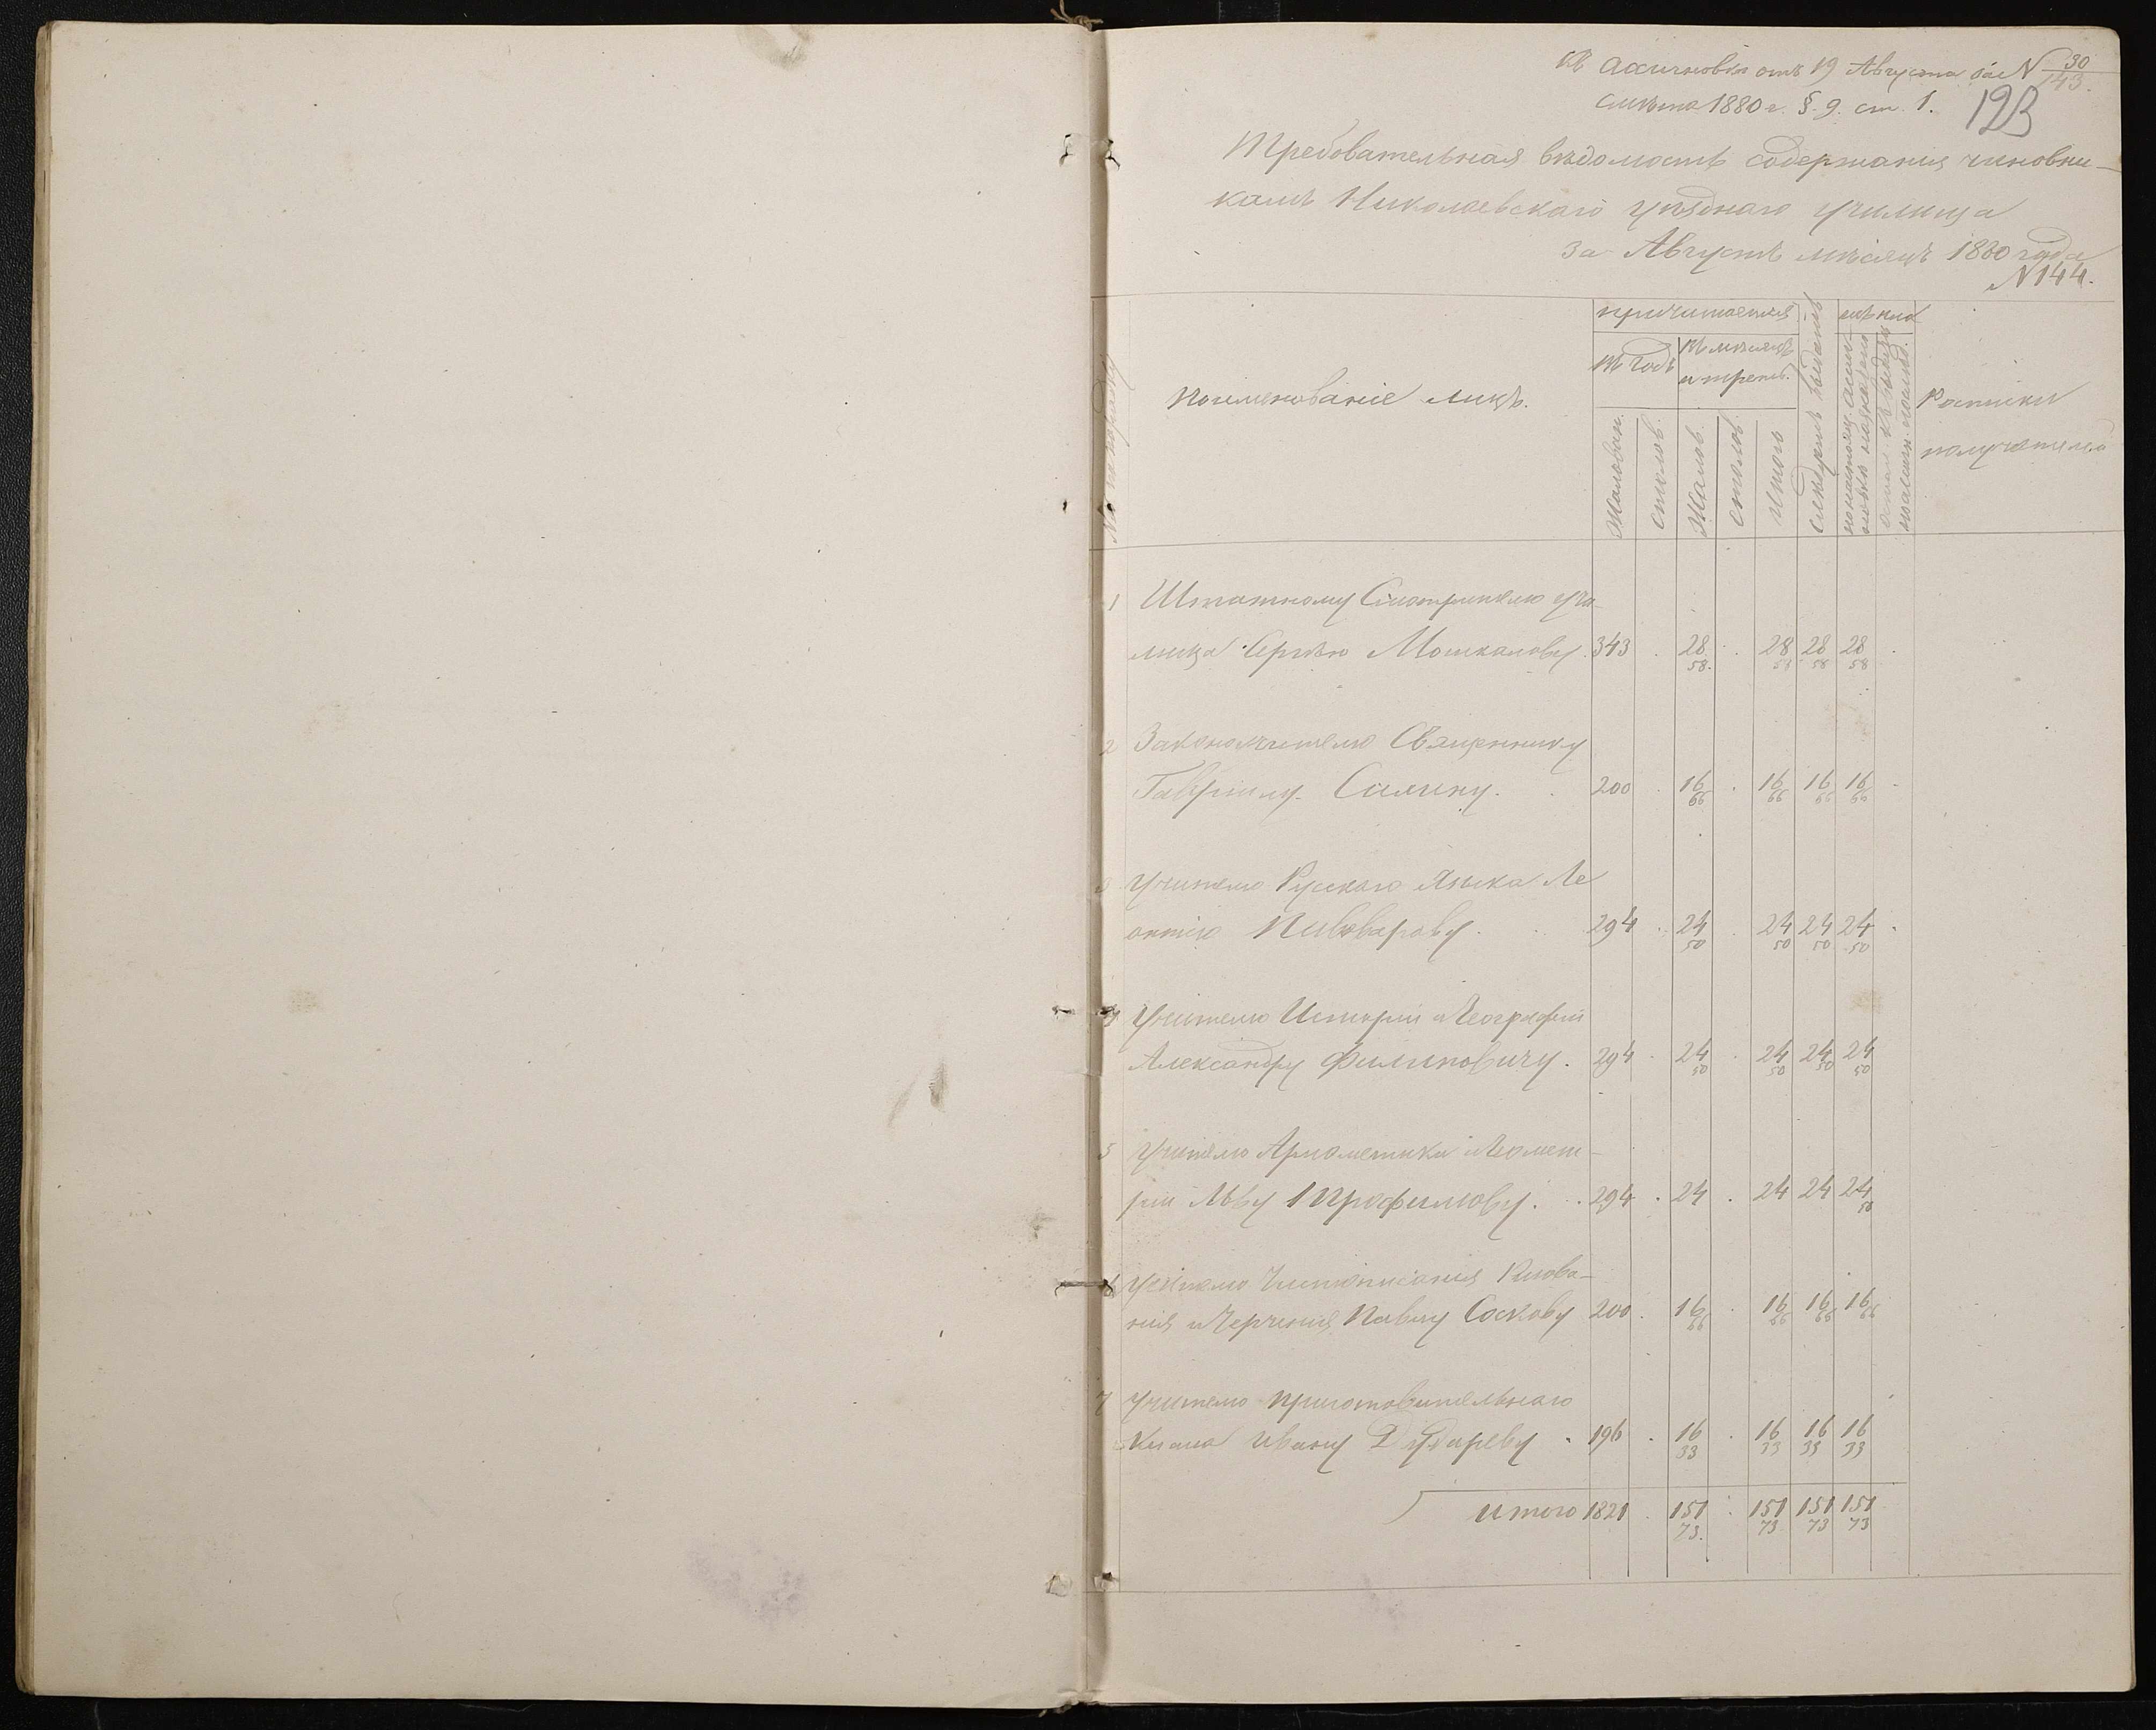 къ ассигновкѣ отъ 19 Августа за № 30/143.
смѣта 1880 г. §. 9. ст. 1.
123
Требовательная вѣдомость содержанія чиновни-
камъ Николаевскаго уѣзднаго училища
за Августъ мѣсяцъ 1880 года
№ 144.
№ по порядку
Поименованіе лицъ.
причитается
въ годъ
въ мѣсяцъ
и треть.
Жалован.
столов.
Жалов.
столов.
Итого
Слѣдуетъ выдать
Росписки
получателей
1 Штатному Смотрителю учи-
лища Сергѣю Мошкалову. 343 . 28 58. . 28 58 28 58 28 58 .
2 Законоучителю Священнику
Гавріилу Силину. . 200 . 16 66 . 16 66 16 66 16 66 .
3 Учителю Русскаго Языка Ле
онтію Пивоварову. . 294 . 24 50 . 24 50 24 50 24 50 .
4 Учителю Исторіи и Географіи
Александру Филиповичу. 294 . 24 50 . 24 50 24 50 24 50
5 Учителю Ариѳметики и Геомет-
ріи Льву Трофимову. . 294 . 24 . 24 24 24 50
6 Учителю Чистописанія Рисова-
нія и Черченія Павлу Соскову 200 . 16 66 . 16 66 16 66 16 66
7 Учителю приготовительнаго
Класса Ивану Дудареву . 196 . 16 33 . 16 33 16 33 16 33
Итого 1821 . 151 73. . 151 73 151 73 151 73